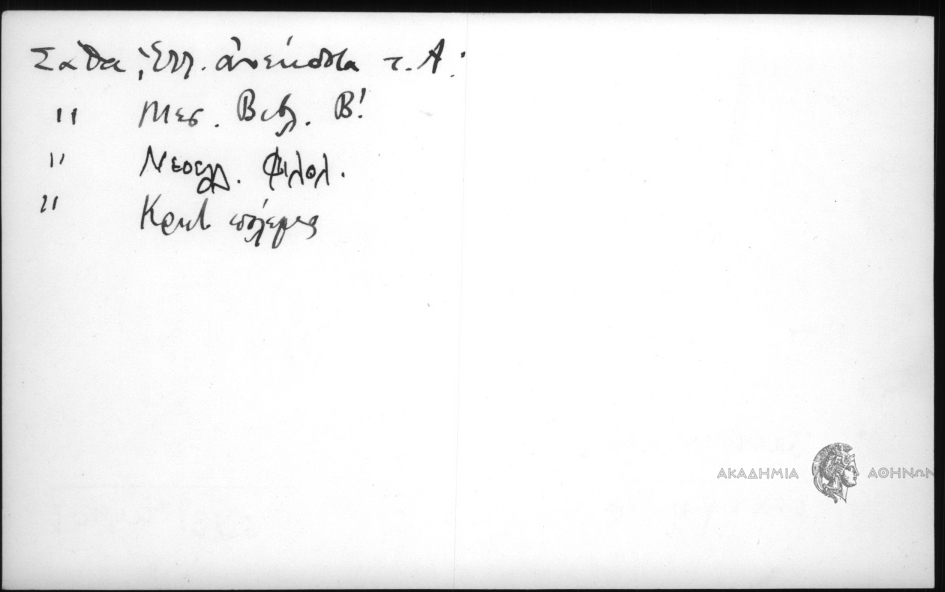 Σάθα, Ἑλλ. ἀνέκδοτα τ. Α΄.
" Μεσ. Βιβλ. Β΄
" Νεοελλ. Φιλολ.
" Κρητ
ΑΚΑΔΗΜΙΑ ΑΘΗΝΩΝ